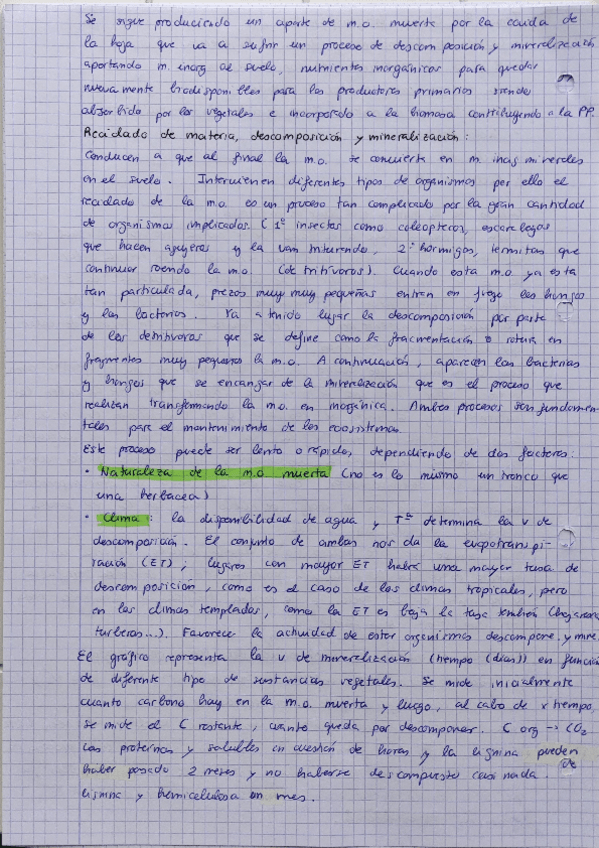 Se sigue produciendo un aporte de m.o. muerte por la caida de
la hoja que va a sufrir un proceso de descomposición y mineralización
aportando m. inorg al suelo, nutrientes inorgánicos para quedar
nuevamente biodisponibles para los productores primarios siendo
absorbido por los vegetales e incorporado a la biomasa contribuyendo a la PP.
Reciclado de materia, descomposición y mineralización:
Conducen a que al final la m.o. se convierte en m. inog minerales
en el suelo. Intervienen diferentes tipos de organismos por ello el
reciclado de la m.o. es un proceso tan complicado por la gran cantidad
de organismos implicados. (1º insectos como coleopteros, escarabajos
que hacen agujeros y la van triturando, 2º hormigas, termitas que
continuan royendo la m.o. (detritívoros). Cuando esta m.o ya esta
tan particulada, trozos muy muy pequeños entran en juego los hongos
y las bacterias. Ya a tenido lugar la descomposición por parte
de los detritivoros que se define como la fragmentación o rotura en
fragmentos muy pequeños la m.o. A continuación, aparecen las bacterias
y hongos que se encargar de la mineralización que es el proceso que
realizan transformando la m.o. en inorgánica. Ambos procesos son fundamen-
tales para el mantenimiento de los ecosistemas.
Este proceso puede ser lento o rápido, dependiendo de dos factores:
· Naturaleza de la m.o muerta (no es lo mismo un tronco que
una herbacea)
· Clima: la disponibilidad de agua y Tª determina la v de
descomposición. El conjunto de ambas nos da la evapotranspi-
ración (ET); lugares con mayor ET habrá una mayor tasa de
descomposición, como es el caso de los climas tropicales, pero
en los climas templados, como la ET es baja la tasa también (
turberas...). Favorece la actividad de estos organismos descompone. y mine.
El gráfico representa la v de mineralización (tiempo (días)) en función
de diferente tipo de sustancias vegetales. Se mide inicialmente
cuanto carbono hay en la m.o. muerta y luego, al cabo de x tiempo,
se mide el C restante, cuanto queda por descomponer. C org → CO2
Las proteinas y solubles en cuestión de horas y la lignina pueden
haber pasado 2 meses y no haberse descompuesto casi nada. de
lignina y hemicelulosa en mes.